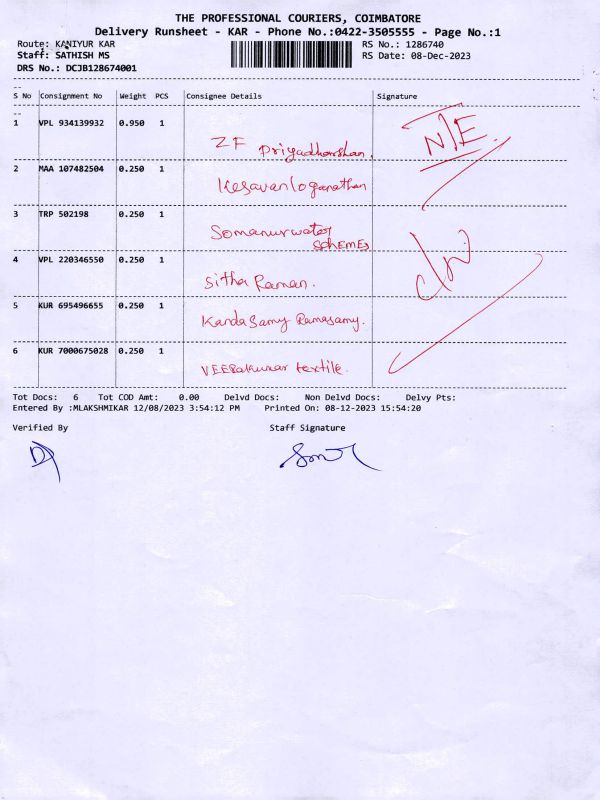 THE PROFESSIONAL COURIERS, COIMBATORE
Delivery Runsheet - KAR - Phone No.:0422-3505555 - Page No.:1
Route: KANIYUR KAR RS No.: 1286740
Staff: SATHISH MS RS Date: 08-Dec-2023
DRS No.: DCJB128674001
S No Consignment No Weight PCS Consignee Details Signature
1 VPL 934139932 0.950 1 ZF Priyadharshan. N/E.
2 MAA 107482504 0.250 1 Kesavanloganathan
3 TRP 502198 0.250 1 Somanurwater
SCHEMEs
4 VPL 220346550 0.250 1 Sitha Raman.
5 KUR 695496655 0.250 1 Kandasamy Ramasamy.
6 KUR 7000675028 0.250 1 VEERakumar textile.
Tot Docs: 6 Tot COD Amt: 0.00 Delvd Docs: Non Delvd Docs: Delvy Pts:
Entered By :MLAKSHMIKAR 12/08/2023 3:54:12 PM Printed On: 08-12-2023 15:54:20
Verified By Staff Signature